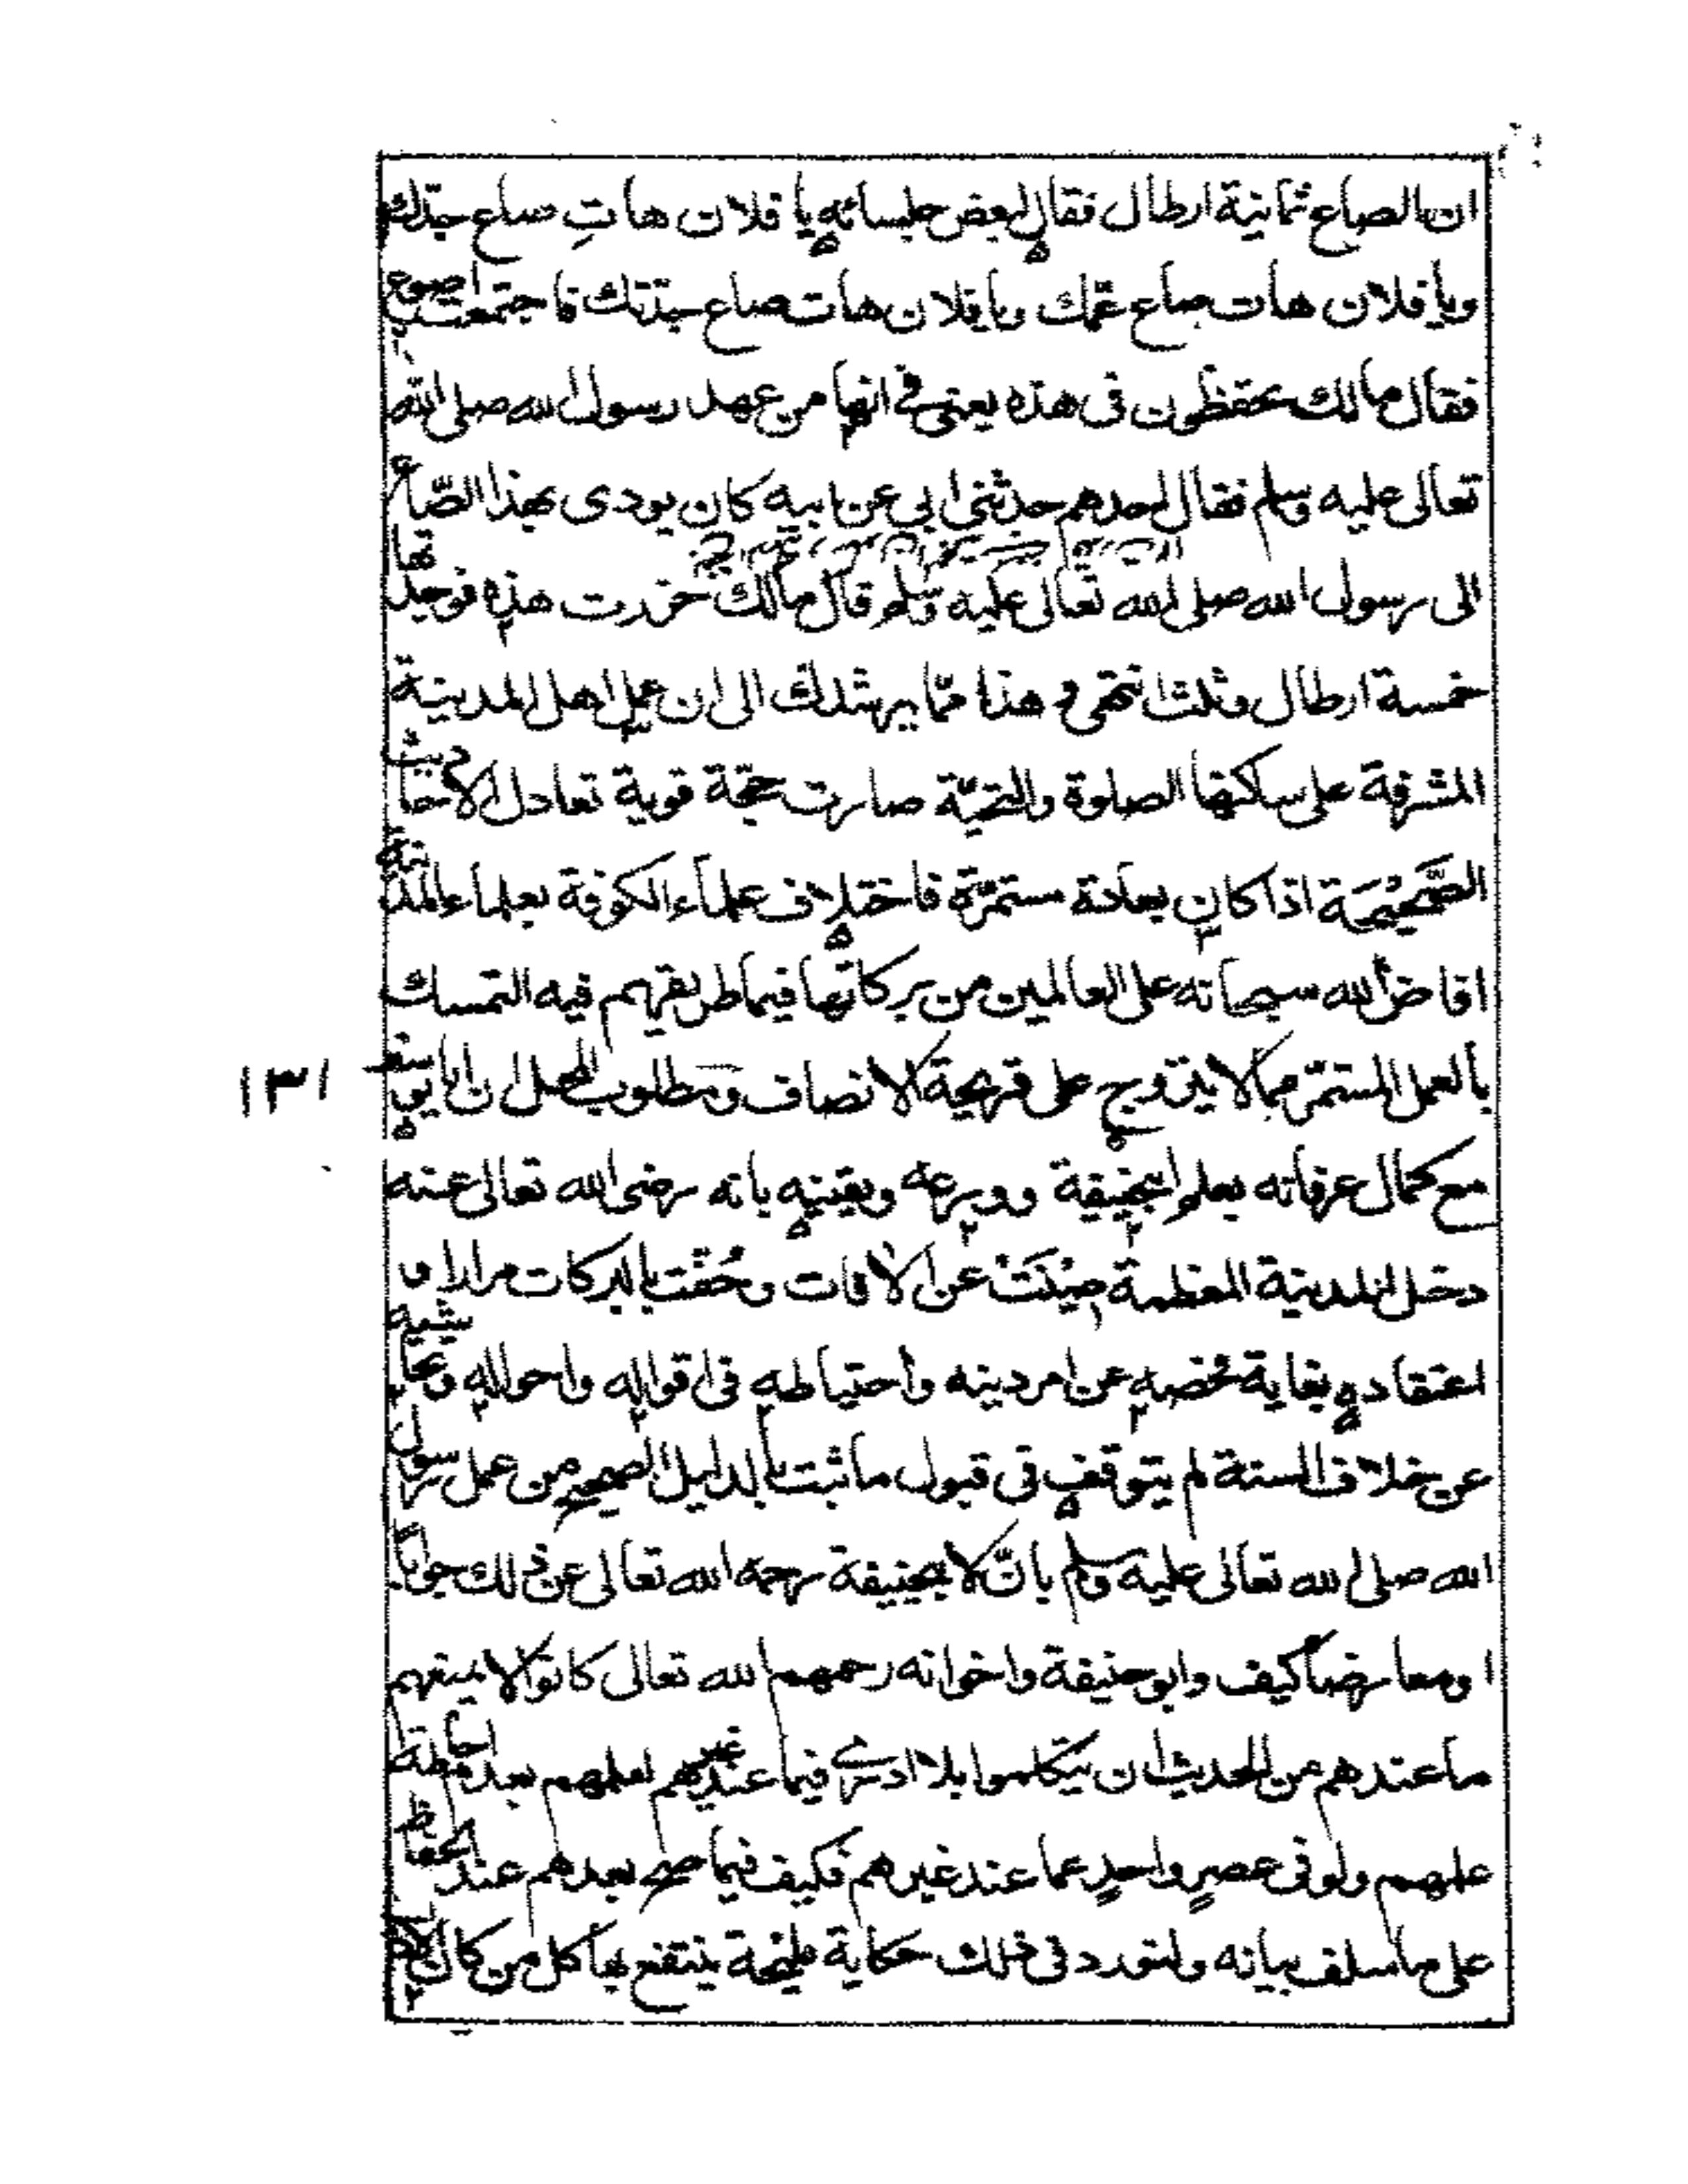 ان الصاع ثمانية ارطال فقال لبعض جلسائه يا فلان هاتِ صاع جدك
ويا فلان هات صاع عمك ويا فلان هات صاع جدتك فاجتمعت اصوع
فقال مالك تحفظون فى هذه يعنى فى انها من عهد رسول الله صلى الله
تعالى عليه وسلم فقال احدهم حدثنى ابى عن ابيه كان يودى بهذا الصّاع
الى رسول الله صلى الله تعالى عليه وسلم قال مالك حزرت هذه فوجدتها
خمسة ارطال وثلثا انتهى و هذا ممّا يرشدك الى ان عمل اهل المدينة
المشرفة على ساكنها الصلوة والتحيّة صارت حجّة قوية تعادل الاحاديث
الصَّحِيْحَة اذا كان بعادة مستمرّة فاختلاف علماء الكوفة بعلماء المدينة
افاض الله سبحانه على العالمين من بركاتها فيما طريقهم فيه التمسك
بالعمل المستمرّ مما لا يتروج على قريحة الانصاف ومطلوب المحصل ان ابا يوسف
١٣١
مع كمال عرفانه بعلم ابيحنيفة وورعه ويقينه بانه رضى الله تعالى عنه
دخل المدينة المعظمة صِيْنَتْ عن الافات وحُفّت بالبركات مرارا و
اعتقاده بغاية فحصه عن امر دينه واحتياطه فى اقواله واحواله وتحاشيه
عن خلاف السنة لم يتوقف فى قبول ما ثبت بالدليل الصحيح من عمل رسول
الله صلى الله تعالى عليه وسلم بانّ لابيحنيفة رحمه الله تعالى عن ذلك جوابا
اومعارضا كيف وابو حنيفة واخوانه رحمهم الله تعالى كانوا لا يمنعهم
ما عندهم من الحديث ان يتكلموا بلا ادرى فيما عند غيرهم لعلمهم بعدم احاطة
علمهم ولو فى عصرٍ واحدٍ عما عند غيرهم فكيف فيما صح بعدهم عند الحفاظ
على ما سلف بيانه ولنورد فى ذلك حكاية مليحة ينتفع بها كل من كان